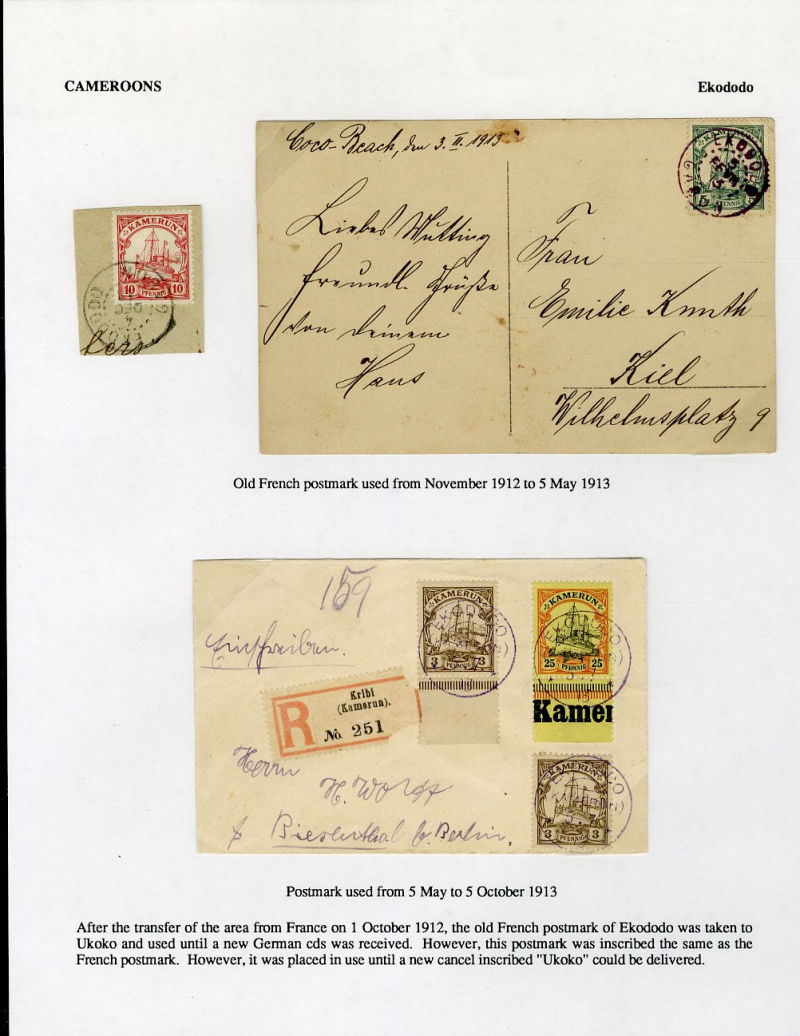 CAMEROONS
Ekododo
KAMERUN
10 PFENNIG 10
DEC
Coco-Beach, den 3. II. 1913
Liebes Mutting
freundl. Grüße
von deinem
Hans
EKODODO
KAMERUN
PFENNIG
Frau
Emilie Knuth
Kiel
Wilhelmsplatz 9
Old French postmark used from November 1912 to 5 May 1913
159
Einschreiben.
KAMERUN
3 PFENNIG 3
EKODODO
KAMERUN
25 PFENNIG 25
Kamer
R
Kribi
(Kamerun).
No. 251
Herrn
H. Worff
Biesenthal b. Berlin.
KAMERUN
3 PFENNIG 3
Postmark used from 5 May to 5 October 1913
After the transfer of the area from France on 1 October 1912, the old French postmark of Ekododo was taken to
Ukoko and used until a new German cds was received. However, this postmark was inscribed the same as the
French postmark. However, it was placed in use until a new cancel inscribed "Ukoko" could be delivered.